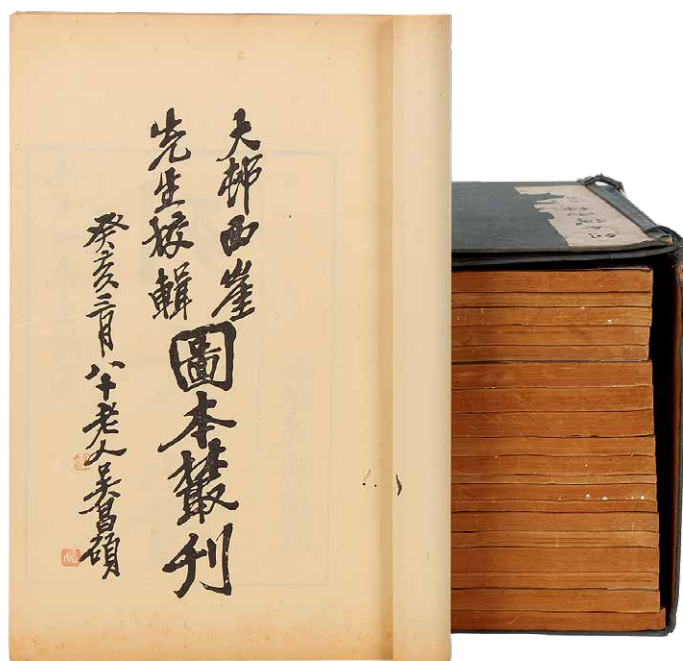 大邨西崖
先生校輯
圖本叢刊
癸亥二月八十老人吳昌碩